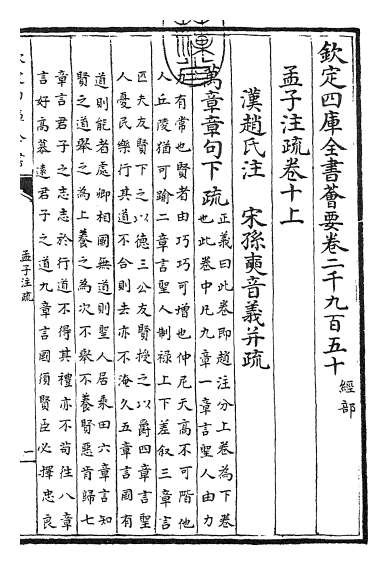 欽定四庫全書薈要卷二千九百五十 經部
孟子注疏卷十上
漢趙氏注 宋孫奭音義并疏
萬章章句下 疏
正義曰此卷即趙注分上卷為下卷
也此卷中凡九章一章言聖人由力
力有常也賢者由巧巧可增也仲尼天高不可階他
人丘陵猶可踰二章言聖人制禄上下差敘三章言
匹夫友賢下之以德三公友賢授之以爵四章言聖
人憂民樂行其道不合則去亦不淹久五章言國有
道則能者處卿相國無道則聖人居乘田六章言知
賢之道舉之為上養之為次不舉不養賢惡肯歸七
章言君子之志志於行道不得其禮亦不苟往八章
言好高慕遠君子之道九章言國須賢臣必擇忠良
孟子注疏
一